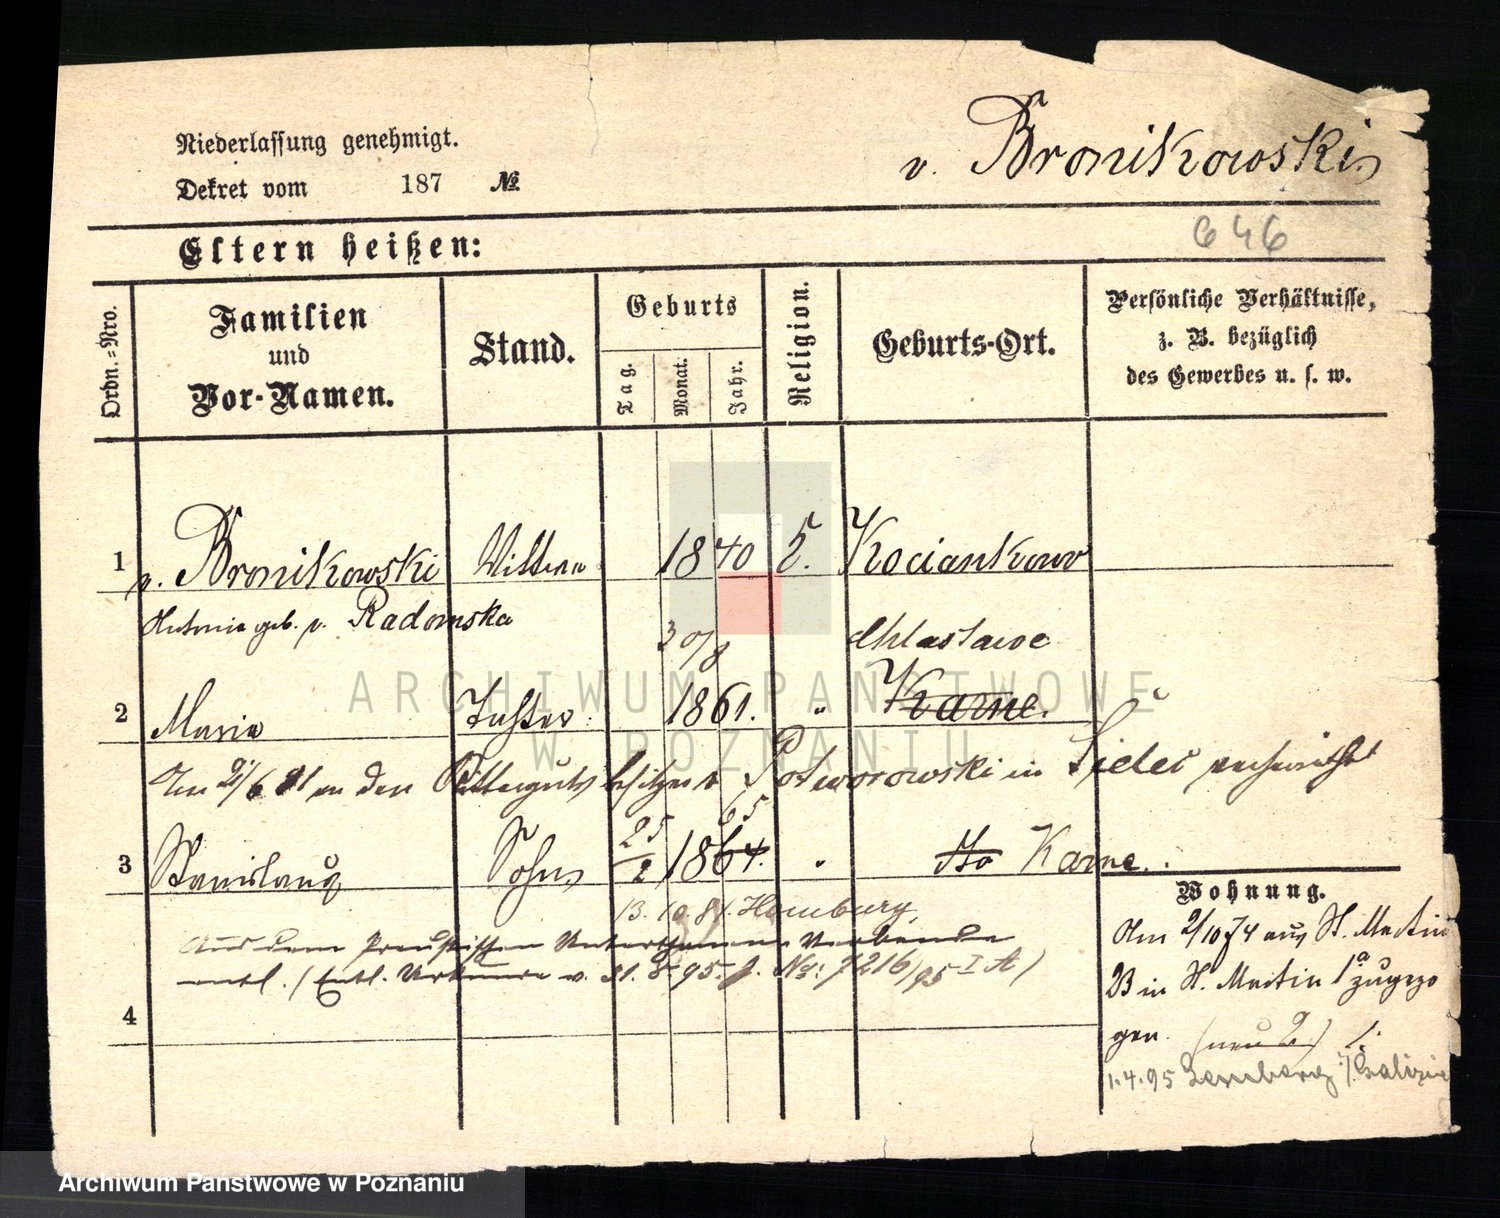 Niederlassung genehmigt.
Dekret vom 187 №
v. Bronikowski
646
Eltern heißen:
Ordn.=Nro.
Familien
und
Vor-Namen.
Stand.
Geburts
Tag.
Monat.
Jahr.
Religion.
Geburts-Ort.
Persönliche Verhältnisse,
z. B. bezüglich
des Gewerbes u. s. w.
1 v. Bronikowski Wittwe 1840 Kociankowo
geb. v. Radomska
30/8 Chlastawe
2 Maria Tochter 1861. " Karne.
Am 21/6 81 an den Rittergutsbesitzer v Potworowski in verheirathet
65
3 Stanislaus Sohn 25/2 1864. " Karne.
13. 10. 84. Homburg,
Aus dem Preußischen Unterthanen Verbande
entl. (Entl. Urkunde v. 31. 8 95. J. No: 7216/95 I A)
4
Wohnung.
Am 2/10 74 aus St. Martin
23 in St. Martin 1a zugezo
gen. (neu 2)
1.4.95 Lemberg i/Galizien
ARCHIWUM PAŃSTWOWE
W POZNANIU
Archiwum Państwowe w Poznaniu